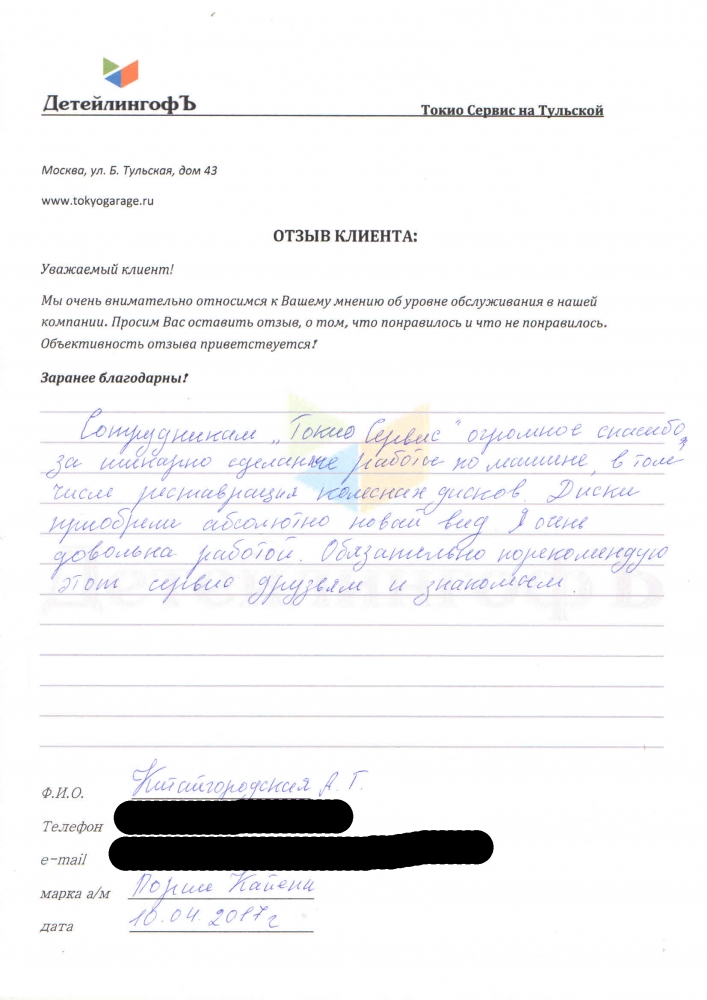 ДетейлингофЪ
Токио Сервис на Тульской
Москва, ул. Б. Тульская, дом 43
www.tokyogarage.ru
ОТЗЫВ КЛИЕНТА:
Уважаемый клиент!
Мы очень внимательно относимся к Вашему мнению об уровне обслуживания в нашей
компании. Просим Вас оставить отзыв, о том, что понравилось и что не понравилось.
Объективность отзыва приветствуется!
Заранее благодарны!
Сотрудникам „Токио Сервис“ огромное спасибо,
за шикарно сделанные работы по машине, в том
числе реставрация колесных дисков. Диски
приобрели абсолютно новый вид. Я очень
довольна работой. Обязательно порекомендую
этот сервис друзьям и знакомым.
Ф.И.О. Китайгородская А. Г.
Телефон
e-mail
марка а/м Порше Кайенн
дата 10.04.2017г